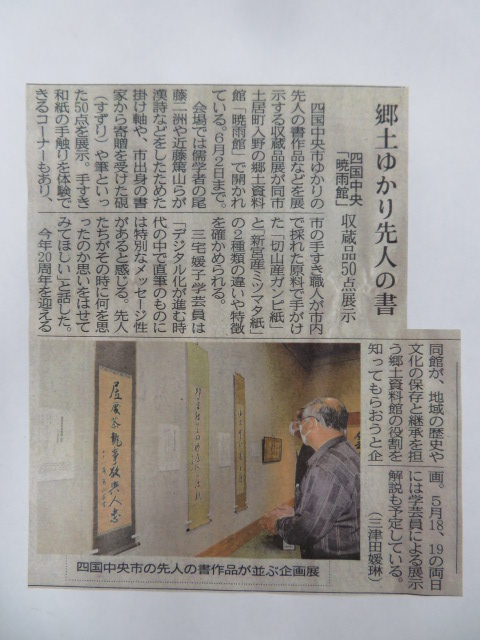 郷土ゆかり先人の書
四国中央
「暁雨館」
収蔵品50点展示
四国中央市ゆかりの
先人の書作品などを展
示する収蔵品展が同市
土居町入野の郷土資料
館「暁雨館」で開かれ
ている。6月2日まで。
会場では儒学者の尾
藤二洲や近藤篤山らが
漢詩などをしたためた
掛け軸や、市出身の書
家から寄贈を受けた硯
（すずり）や筆といっ
た50点を展示。手すき
和紙の手触りを体験で
きるコーナーもあり、
市の手すき職人が市内
で採れた原料で手がけ
た「切山産ガンピ紙」
と「新宮産ミツマタ紙」
の2種類の違いや特徴
を確かめられる。
三宅媛子学芸員は
「デジタル化が進む時
代の中で直筆のものに
は特別なメッセージ性
があると感じる。先人
たちがその時に何を思
ったのか思いをはせて
みてほしい」と話した。
今年20周年を迎える
同館が、地域の歴史や
文化の保存と継承を担
う郷土資料館の役割を
知ってもらおうと企
画。5月18、19の両日
には学芸員による展示
解説も予定している。
（三津田媛琳）
四国中央市の先人の書作品が並ぶ企画展